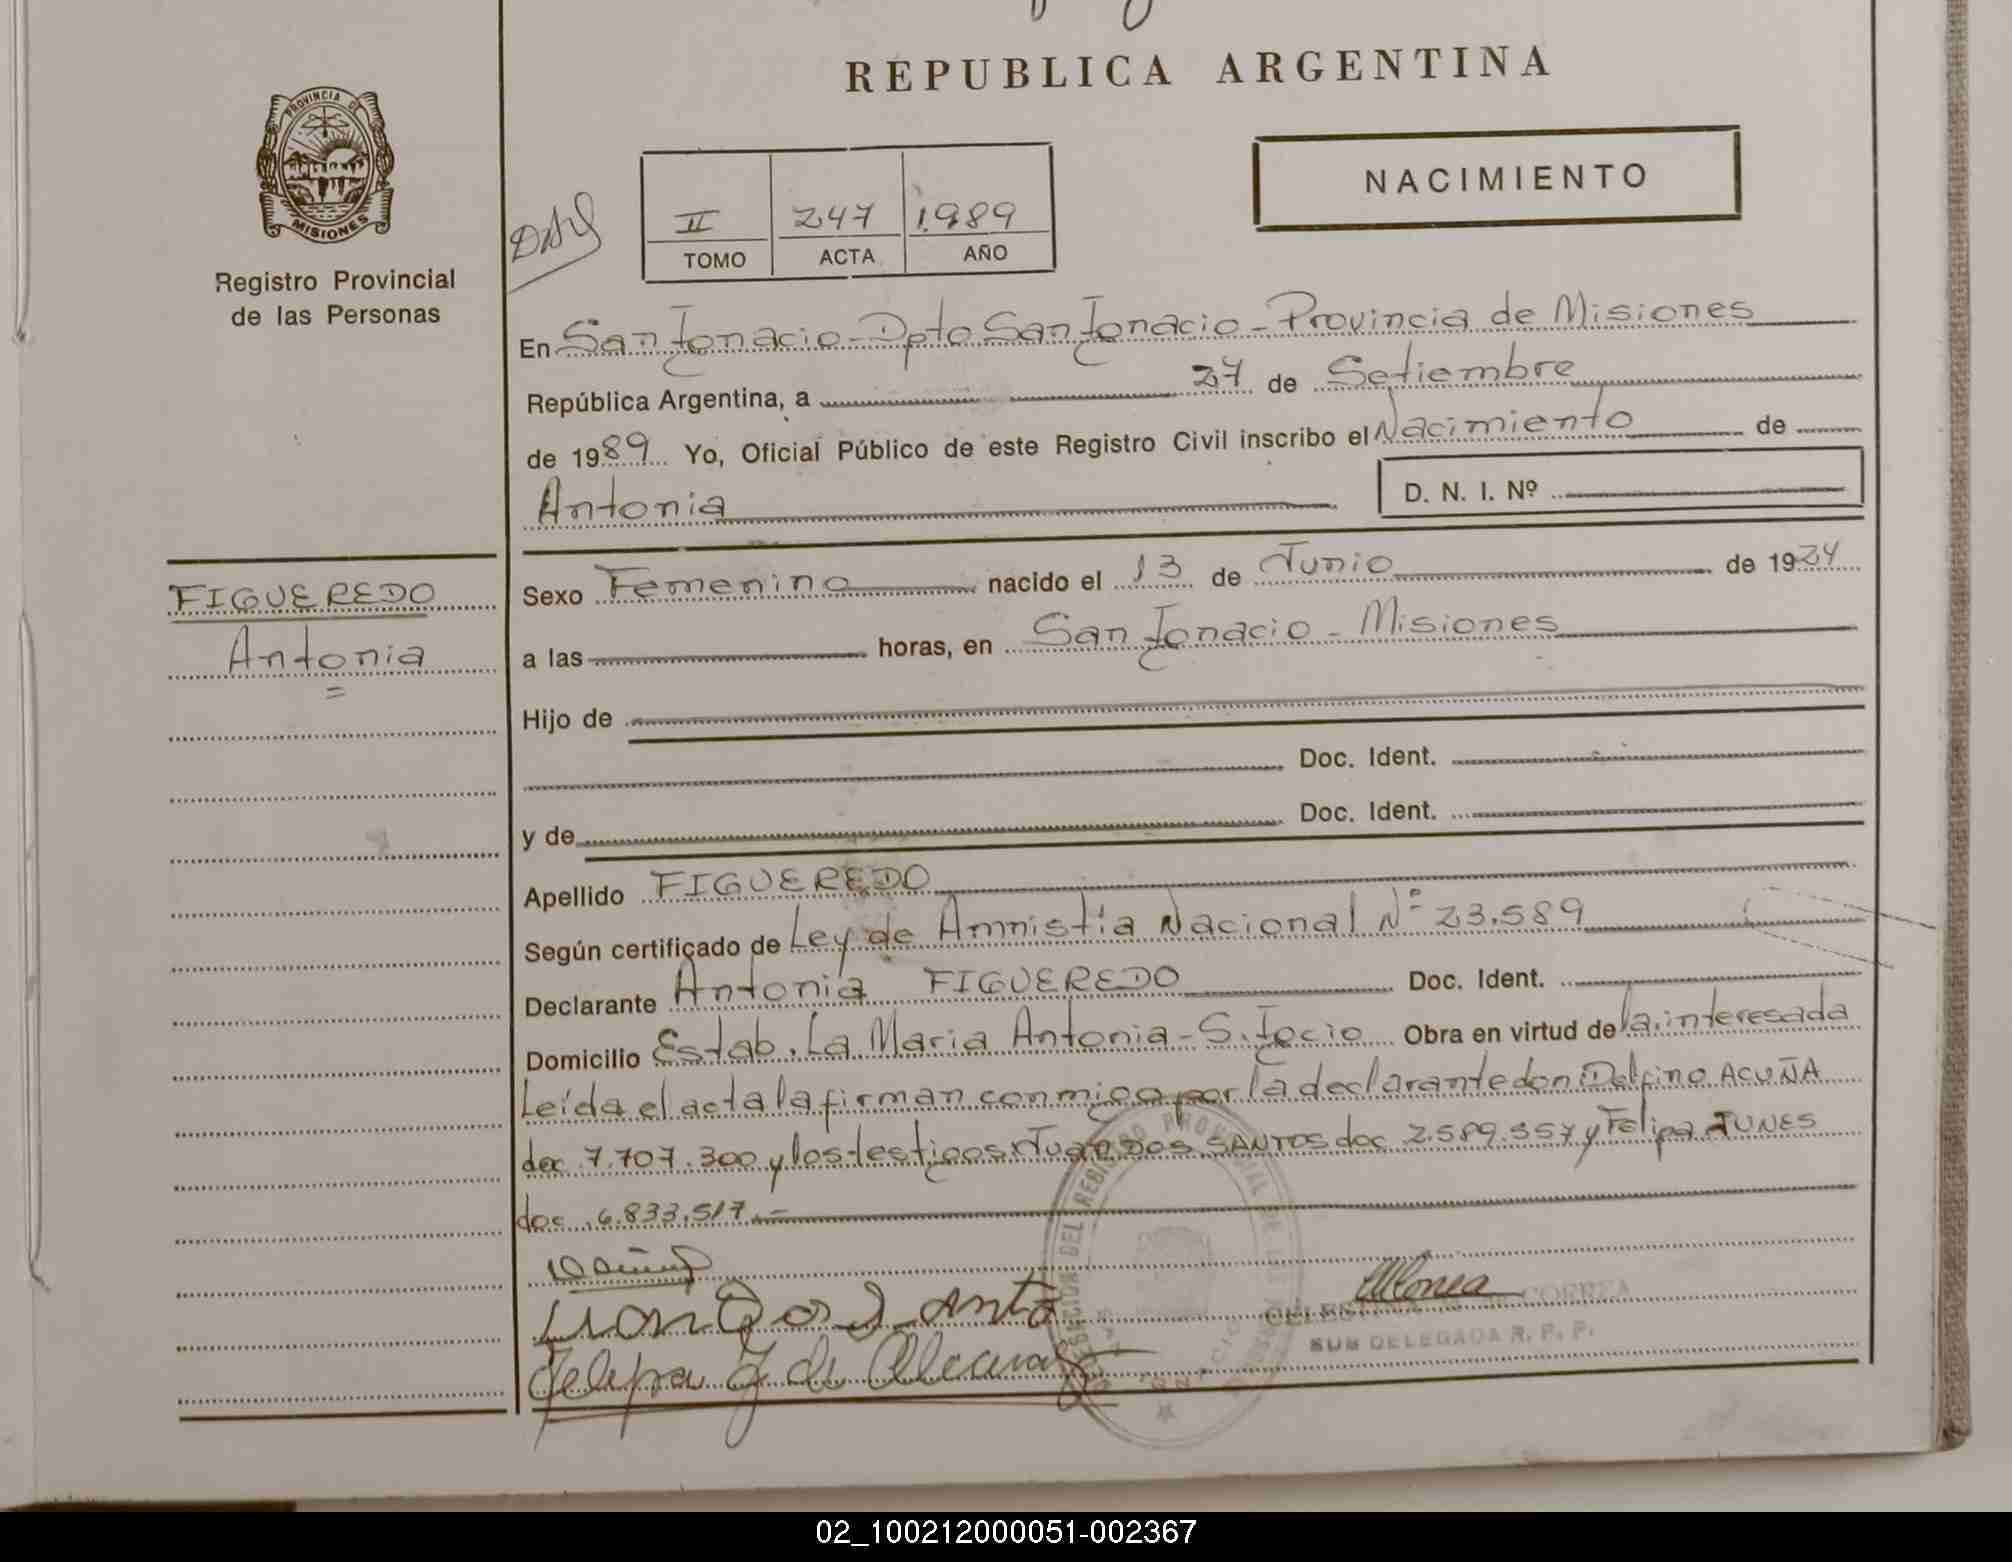 REPUBLICA ARGENTINA
PROVINCIA DE
MISIONES
Registro Provincial
de las Personas
NACIMIENTO
II 247 1.989
TOMO ACTA AÑO
En San Ignacio - Dpto San Ignacio - Provincia de Misiones
República Argentina, a 27 de Setiembre
de 1989 Yo, Oficial Público de este Registro Civil inscribo el Nacimiento de
Antonia D. N. I. Nº
FIGUEREDO
Antonia
Sexo Femenino nacido el 13 de Junio de 1924
a las horas, en San Ignacio - Misiones
Hijo de
Doc. Ident.
y de Doc. Ident.
Apellido FIGUEREDO
Según certificado de Ley de Amnistía Nacional Nº 23.589
Declarante Antonia FIGUEREDO Doc. Ident.
Domicilio Estab. La Maria Antonia - S. Igcio Obra en virtud de la interesada
Leída el acta la firman conmigo por la declarante don Delfino ACUÑA
doc 7.707.300 y los testigos Juan DOS SANTOS doc 2.589.557 y Felipa JUNES
doc 6.833.517.-
Felipa J de
CELESTINA CORREA
SUB DELEGADA R. P. P.
02_100212000051-002367